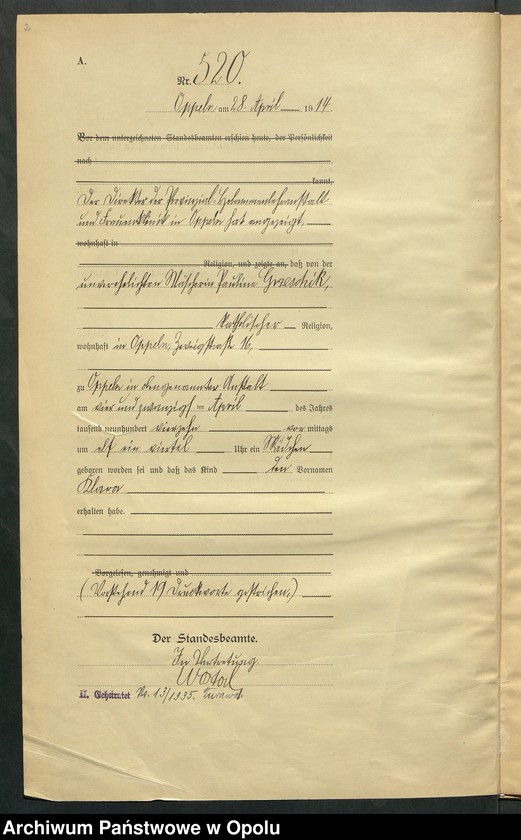 2
A.
Nr. 520.
Oppeln am 28. April 1914
Vor dem unterzeichneten Standesbeamten erschien heute, der Persönlichkeit
nach
kannt,
Der Direktor der Provinzial-Hebammenlehranstalt
und Frauenklinik in Oppeln hat angezeigt,
wohnhaft in
Religion, und zeigte an, daß von der
unverehelichten Wäscherin Pauline Grzeschik,
katholischer Religion,
wohnhaft in Oppeln, Zweigstraße 16,
zu Oppeln in obengenannter Anstalt
am vier und zwanzigsten April des Jahres
tausend neunhundert vierzehn vormittags
um elf ein viertel Uhr ein Mädchen
geboren worden sei und daß das Kind den Vornamen
Klara
erhalten habe.
Vorgelesen, genehmigt und
(Vorstehend 19 Druckworte gestrichen.)
Der Standesbeamte.
In Vertretung
II. Geheiratet Nr. 13/1935.
Archiwum Państwowe w Opolu